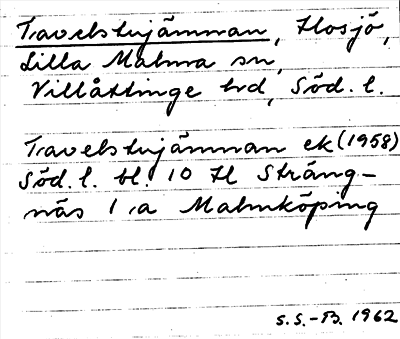 Travelstujämnan, Hosjö,
Lilla Malma sn,
Villåttinge hd, Söd. l.
Travelstujämnan ek (1958)
Söd. l. bl. 10 H Sträng-
näs 1:a Malmköping
S.S.-B. 1962